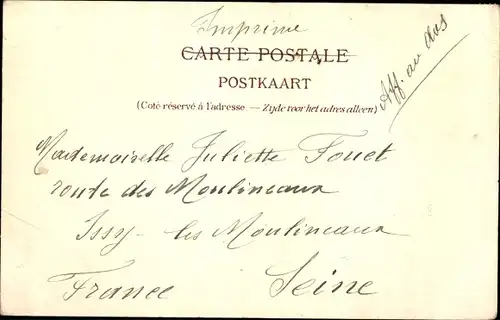 Imprime
CARTE POSTALE
POSTKAART
(Coté réservé à l'adresse — Zijde voor het adres alleen)
Aff. au dos
Mademoiselle Juliette Fouet
route des Moulineaux
Issy-les Moulineaux
France Seine